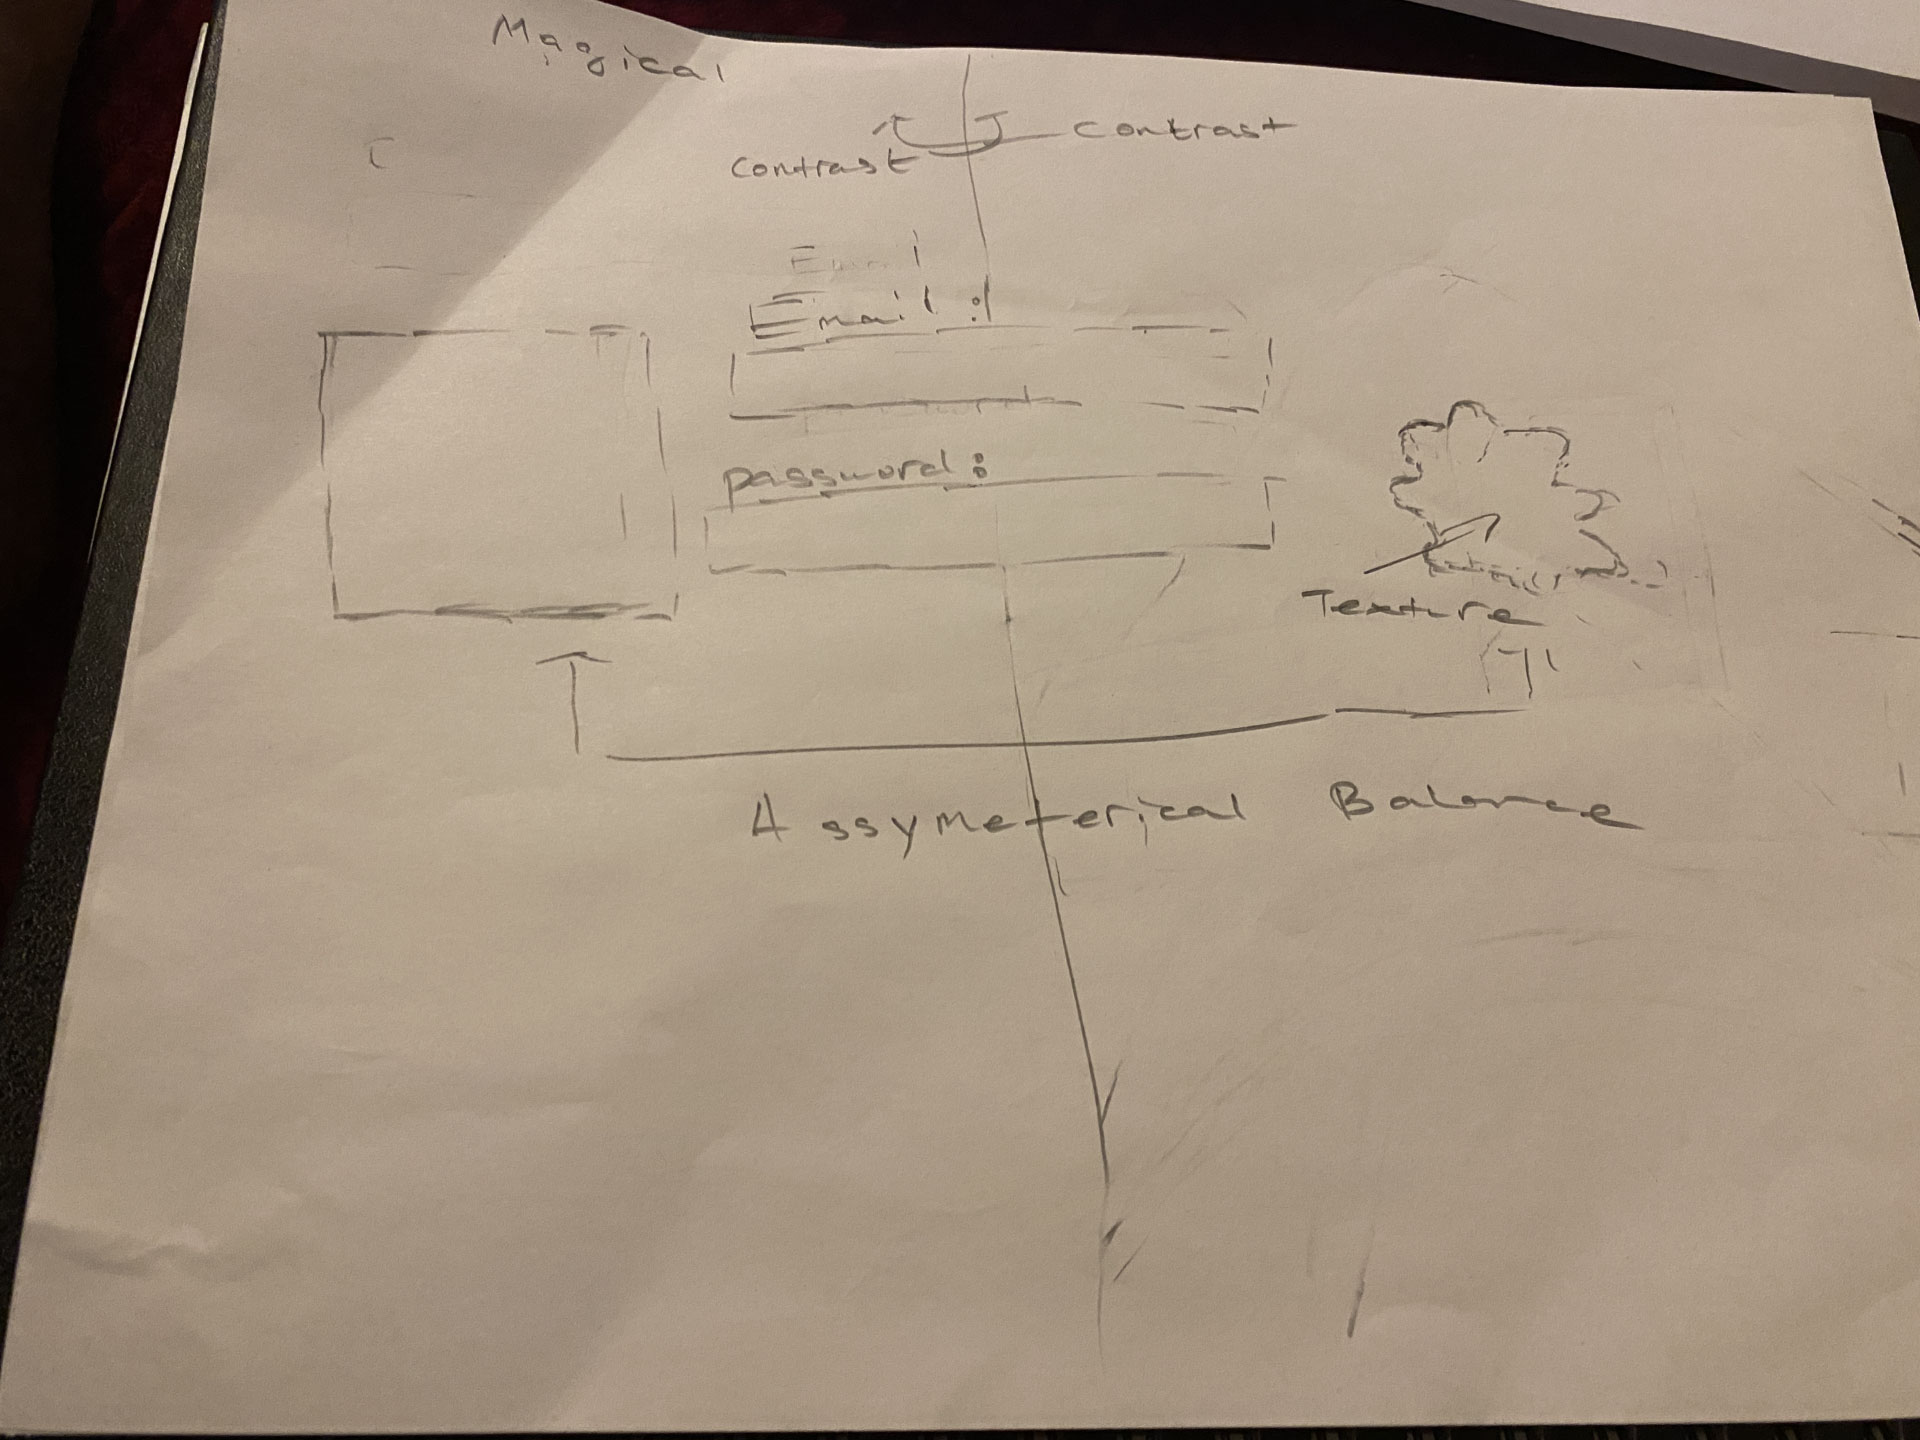 Magical
contrast
contrast
Email
Email :
password:
Texture
Assymeterical Balance